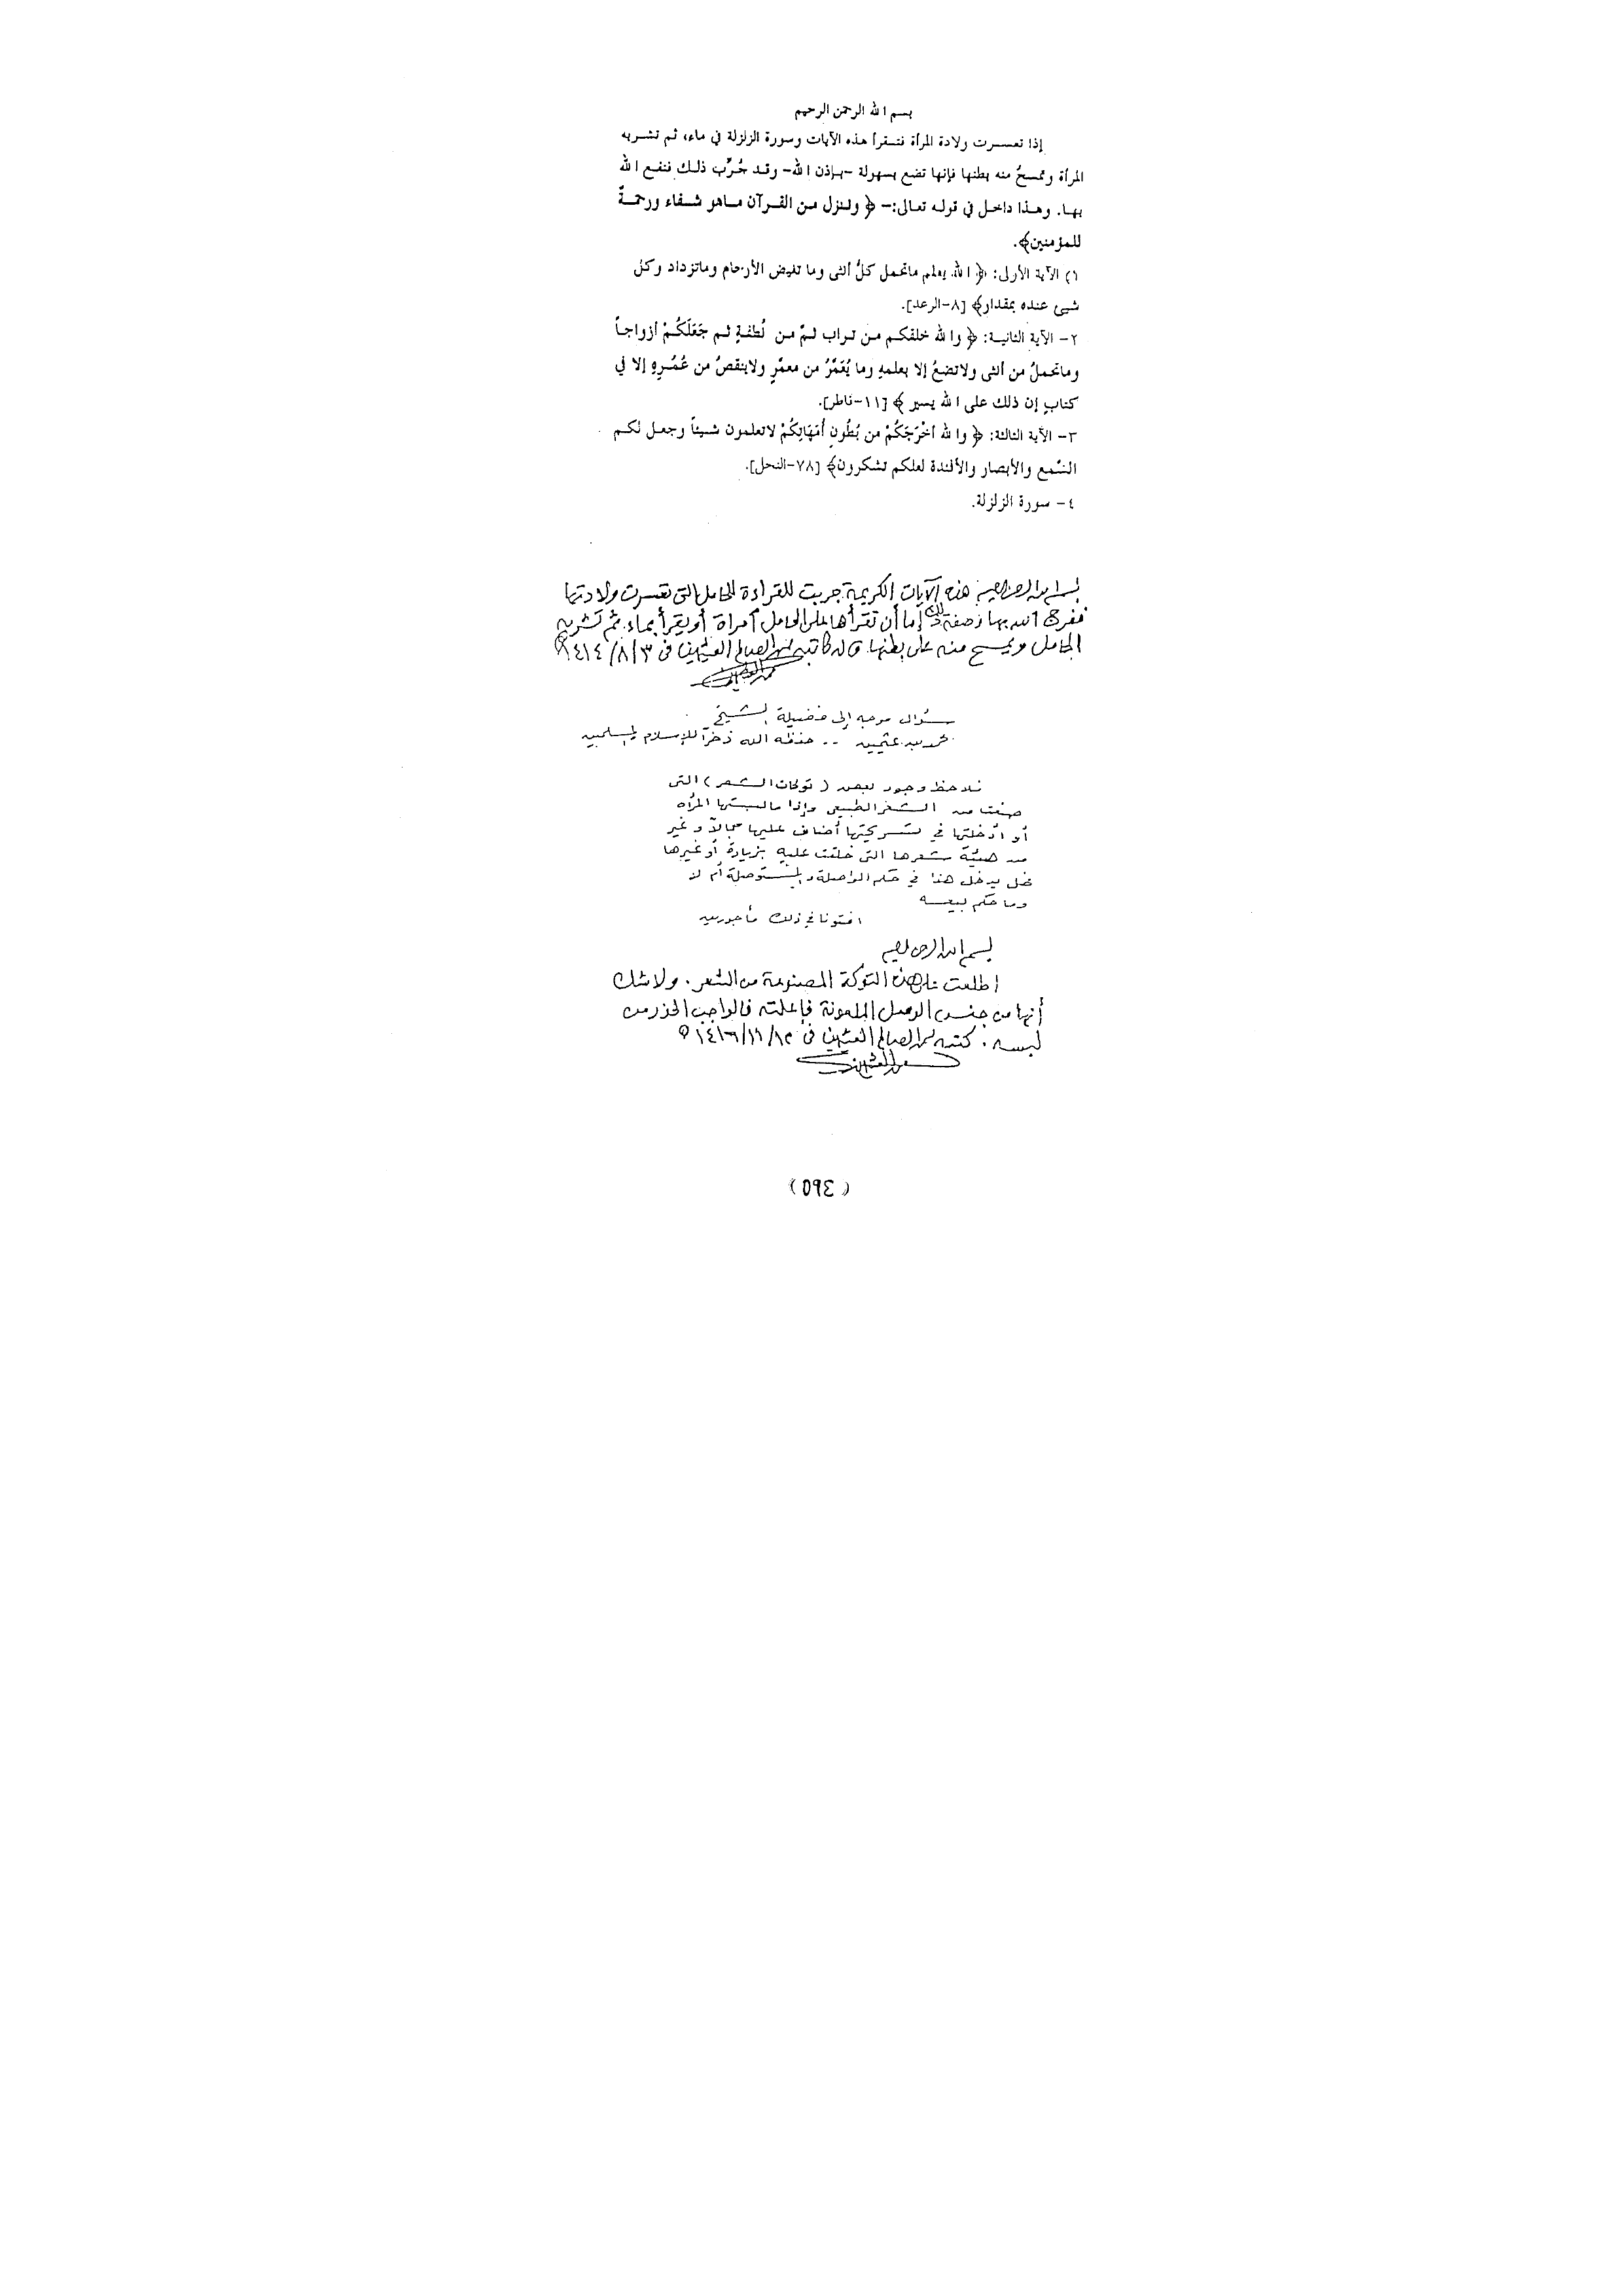 بسم الله الرحمن الرحيم
إذا تعسرت ولادة المرأة فتقرأ هذه الآيات وسورة الزلزلة في ماء، ثم تشربه
المرأة وتمسحُ منه بطنها فإنها تضع بسهولة -بإذن الله- وقد جُرِّب ذلك فنفع الله
بها. وهذا داخل في قوله تعالى:- ﴿ وننزل من القرآن ماهو شفاء ورحمةٌ
للمؤمنين﴾.
١) الآية الأولى: ﴿ الله يعلم ماتحمل كلُّ أنثى وما تغيض الأرحام وماتزداد وكل
شيئ عنده بمقدار﴾ [٨-الرعد].
٢- الآية الثانية: ﴿ والله خلقكم من تراب ثمَّ من نُطفةٍ ثم جَعَلَكُمْ أزواجاً
وماتحملُ من أنثى ولاتضعُ إلا بعلمهِ وما يُعَمَّرُ من معمَّرٍ ولاينقصُ من عُمُرِهِ إلا في
كتابٍ إن ذلك على الله يسير ﴾ [١١-فاطر].
٣- الآية الثالثة: ﴿ والله أخْرَجَكُمْ من بُطُونِ أُمَّهَاتِكُمْ لاتعلمون شيئاً وجعل لكم
السَّمع والأبصار والأفئدة لعلكم تشكرون﴾ [٧٨-النحل].
٤- سورة الزلزلة.
بسم الله الرحمن الرحيم هذه الآيات الكريمة جربت للقراءة للحامل التي تعسرت ولادتها
ففرج الله بها وصفة ذلك إما أن تقرأها على الحامل امرأة أو يقرأ بماء ثم تشربه
الحامل ويمسح منه على بطنها. قاله كاتبه محمد الصالح العثيمين في ٣/٨/١٤١٤هـ
محمد العثيمين
سؤال موجه إلى فضيلة الشيخ
محمد بن عثيمين .. حفظه الله ذخراً للإسلام والمسلمين
نلاحظ وجود بعض ( توكات الشعر ) التي
صنعت من الشعر الطبيعي وإذا ما لبستها المرأه
أو أدخلتها في تسريحتها أضاف عليها جمالاً وغير
من هيئة شعرها التي خلقت عليه بزيادة أو غيرها
فهل يدخل هذا في حكم الواصلة والمستوصلة أم لا
وما حكم لبسه
افتونا في ذلك مأجورين
بسم الله الرحمن الرحيم
اطلعت على هذه التوكة المصنوعة من الشعر. ولا شك
أنها من جنس الوصل الملعونة فاعلته فالواجب الحذر من
لبسه. كتبه محمد الصالح العثيمين في ١٤١٦/١١/١٥هـ
محمد العثيمين
(٥٩٤)